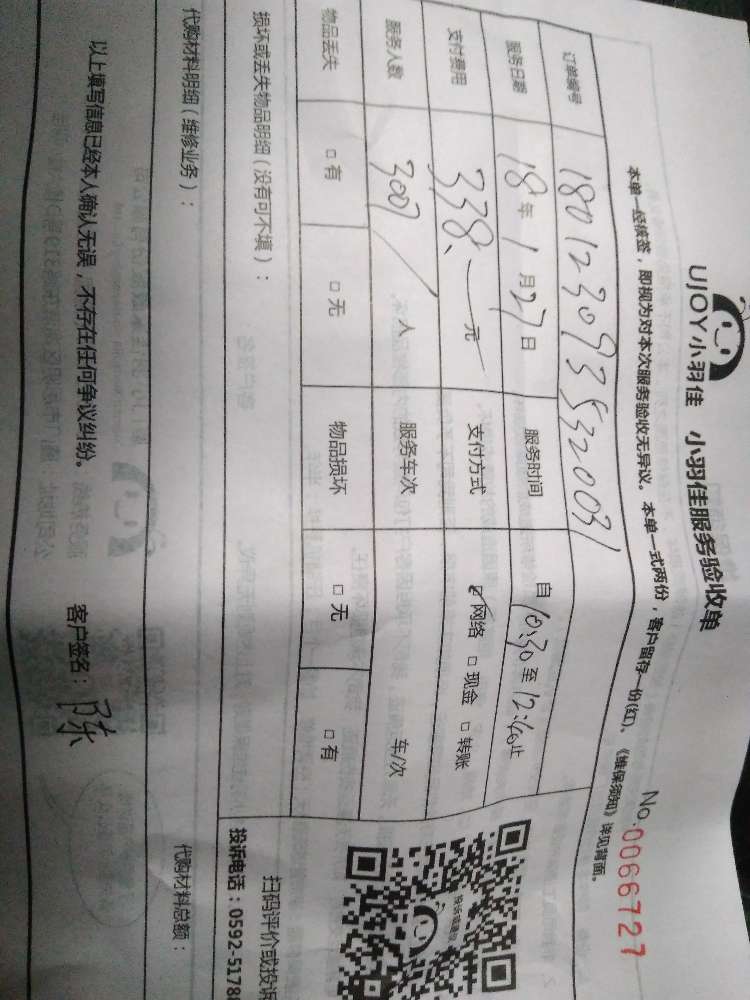 UJOY小羽佳 小羽佳服务验收单
No.0066727
本单一经接签,即视为对本次服务验收无异议。本单一式两份,客户留存一份(红)。《维保须知》详见背面。
订单编号 180123093532003
服务日期 18年1月27日 服务时间 自10:30至12:40止
支付费用 338、一元 支付方式 ☑网络 □现金 □转账
服务人数 人 服务车次 车/次
物品丢失 □有 □无 物品损坏 □无 □有
损坏或丢失物品明细(没有可不填):
扫码评价或投诉
投诉电话:0592-5178
代购材料明细(维修业务):
代购材料总额:
以上填写信息已经本人确认无误,不存在任何争议纠纷。 客户签名:陈